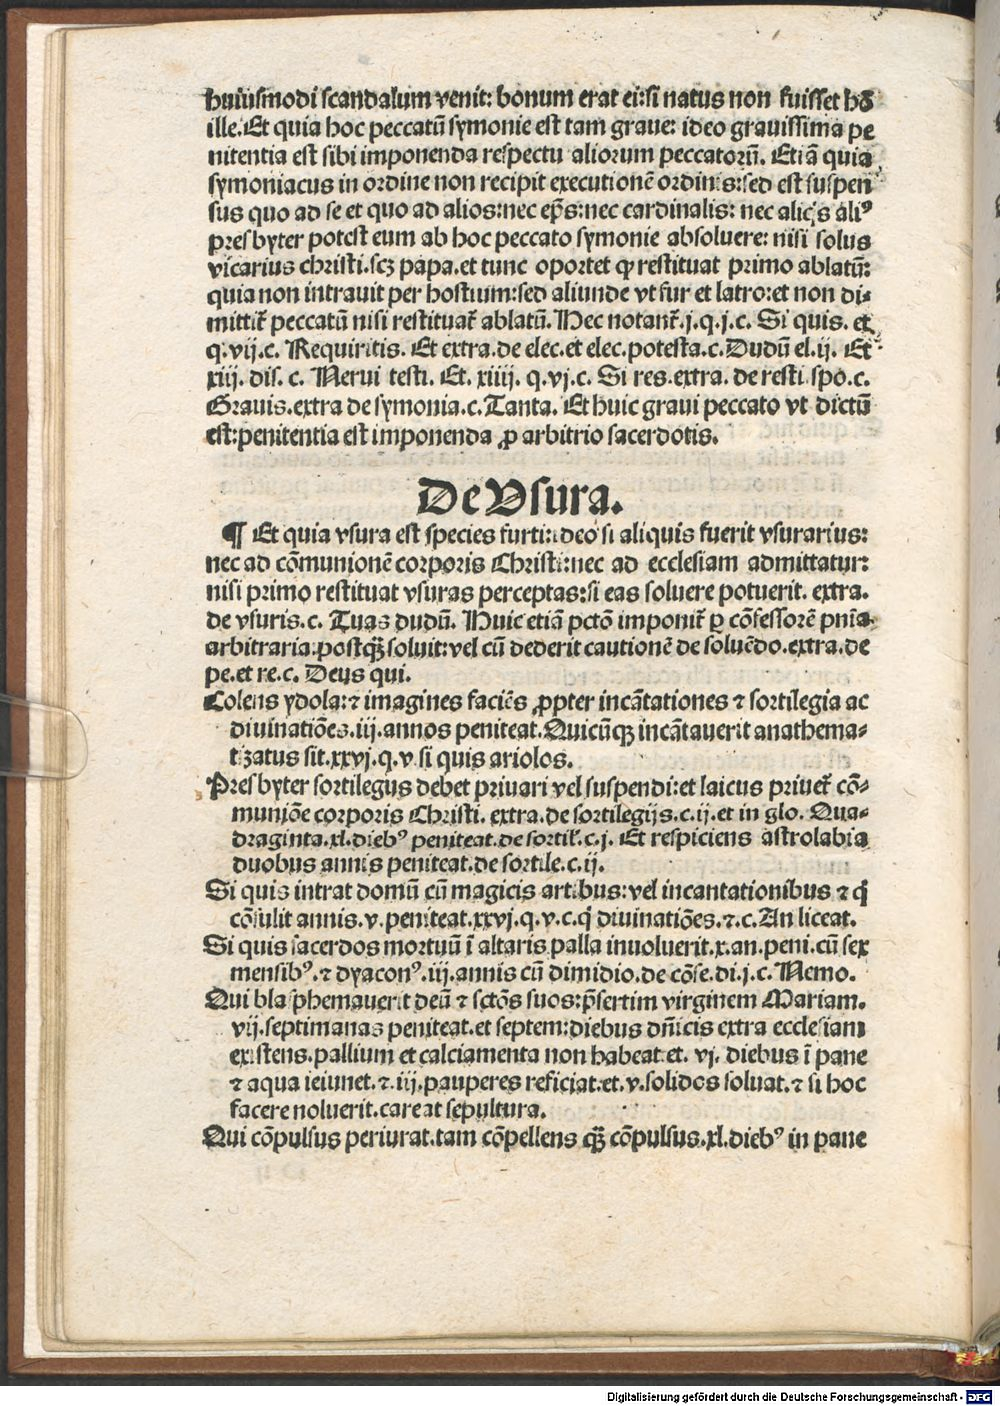 huiusmodi scandalum venit: bonum erat ei:si natus non fuisset hō
ille.Et quia hoc peccatū symonie est tam graue: ideo grauissima pe
nitentia est sibi imponenda respectu aliorum peccatorū. Etiā quia
symoniacus in ordine non recipit executionē ordinis:sed est suspen
sus quo ad se et quo ad alios:nec ep̄s:nec cardinalis: nec aliq̄s aliꝰ
presbyter potest eum ab hoc peccato symonie absoluere: nisi solus
vicarius christi.scꝫ papa.et tunc oportet ꝙ restituat primo ablatū:
quia non intrauit per hostium:sed aliunde vt fur et latro:et non di-
mittit̄ peccatū nisi restituat̄ ablatū. Hec notant̄.j.q.j.c. Si quis. et
q.vij.c. Requiritis. Et extra.de elec.et elec.potesta.c.Dudū el.ij. Et
xiij. dis. c. Nerui testi. Et. xiiij. q.vj.c. Si res.extra. de resti spo.c.
Grauis.extra de symonia.c.Tanta. Et huic graui peccato vt dictū
est:penitentia est imponenda ꝓ arbitrio sacerdotis.
De Vsura.
¶ Et quia vsura est species furti:ideo si aliquis fuerit vsurarius:
nec ad cōmunionē corporis Christi:nec ad ecclesiam admittatur:
nisi primo restituat vsuras perceptas:si eas soluere potuerit. extra.
de vsuris.c. Tuas dudū. Huic etiā pctō imponit̄ ꝑ cōfessorē pn̄ia
arbitraria:postqꝫ̄ soluit:vel cū dederit cautionē de soluēdo.extra.de
pe.et re.c. Deus qui.
Colens ydola:⁊ imagines faciēs ꝓpter incātationes ⁊ sortilegia ac
diuinatiōes.iii.annos peniteat.Quicūqꝫ incātauerit anathema-
tizatus sit.xxvj.q.v si quis ariolos.
Presbyter sortilegus debet priuari vel suspendi:et laicus priuet̄ cō-
muniōe corporis Christi. extra.de sortilegijs.c.ij.et in glo. Qua-
draginta.xl.diebꝰ peniteat.de sortil̄.c.j. Et respiciens astrolabia
duobus annis peniteat.de sortile.c.ij.
Si quis intrat domū cū magicis artibus:vel incantationibus ⁊ q̄
cōsulit annis.v.peniteat.xxvj.q.v.c.q̄ diuinatiōes.⁊.c.An liceat.
Si quis sacerdos mortuū ī altaris palla inuoluerit.x.an.peni.cū sex
mensibꝰ.⁊ dyaconꝰ.iij.annis cū dimidio.de cōse.di.j.c.Nemo.
Qui blasphemauerit deū ⁊ sctōs suos:p̄sertim virginem Mariam.
vij.septimanas peniteat.et septem:diebus dn̄icis extra ecclesiam
existens.pallium et calciamenta non habeat.et. vj. diebus ī pane
⁊ aqua ieiunet.⁊.iij.pauperes reficiat.et.v.solidos soluat.⁊ si hoc
facere noluerit.careat sepultura.
Qui cōpulsus periurat.tam cōpellens qꝫ̄ cōpulsus.xl.diebꝰ in pane
Digitalisierung gefördert durch die Deutsche Forschungsgemeinschaft - DFG